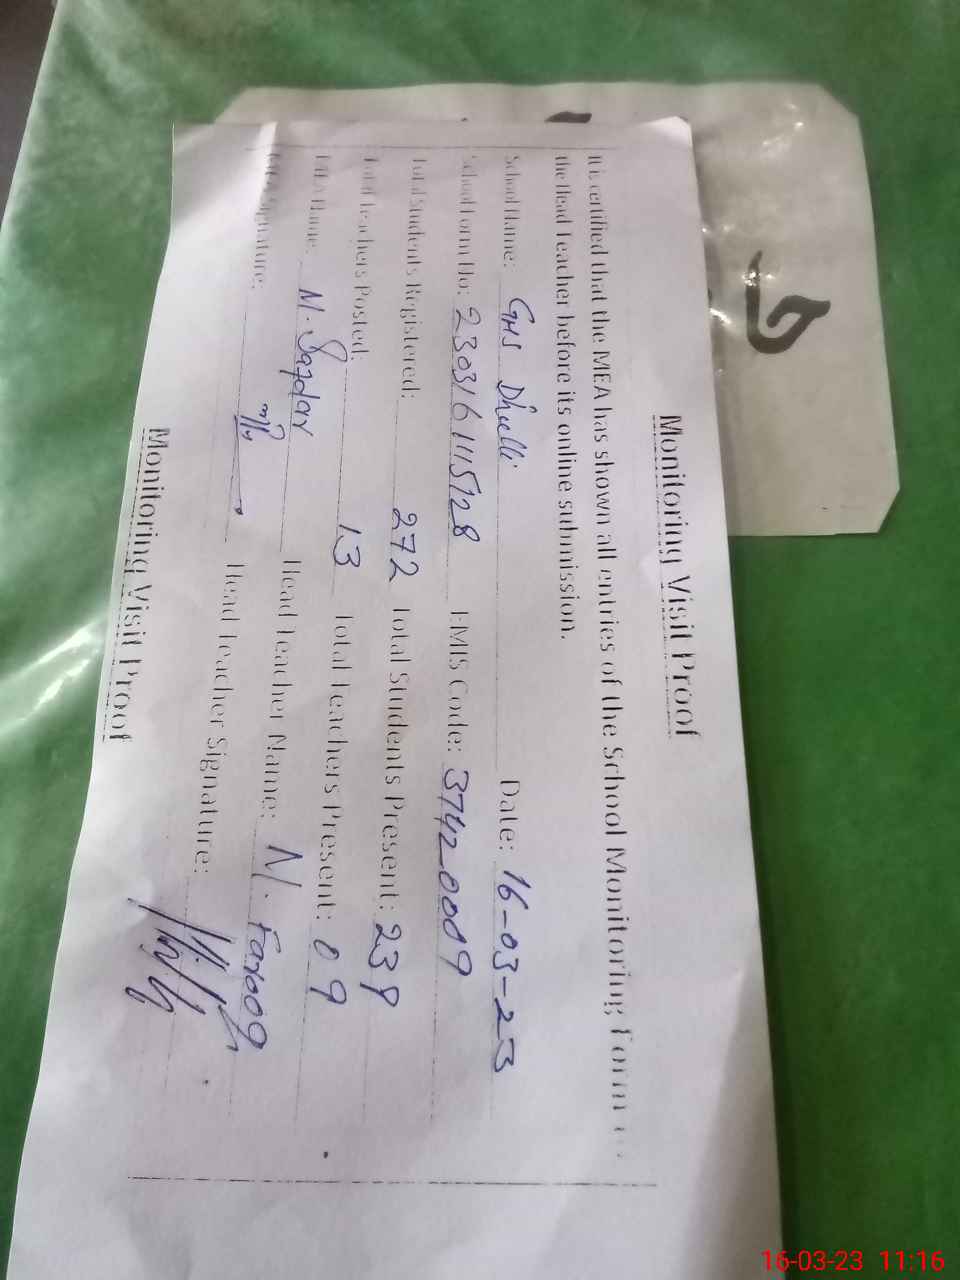 Monitoring Visit Proof
It is certified that the MEA has shown all entries of the School Monitoring Form
the Head Teacher before its online submission.
School Name: GHS Dhulli Date: 16-03-23
School Form No: 2303161115128 EMIS Code: 3742-0009
Total Students Registered: 272 Total Students Present: 238
Total Teachers Posted: 13 Total Teachers Present: 09
MEA Name: M. Head Teacher Name: M. Farooq
MEA Signature: Head Teacher Signature:
Monitoring Visit Proof
16-03-23 11:16